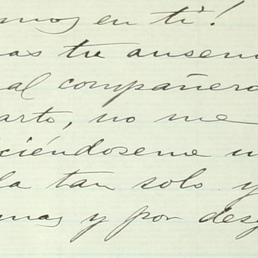 mos en ti!
as tu ausen
al compañero
arto, no me
ciéndoseme u
la tan solo y
mas y por desg